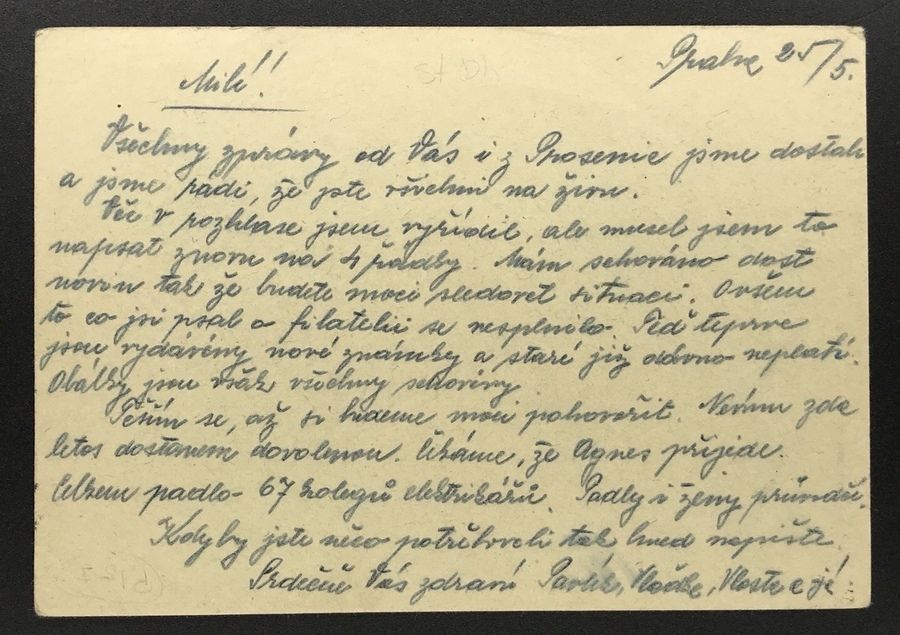 Praha 25/5.
Milí!!
Všechny zprávy od Vás i z Prosenic jsme dostali
a jsme rádi, že jste všichni na živu.
Věc v rozhlase jsem vyřídil, ale musel jsem to
napsat znovu na 4 řádky. Mám schováno dost
novin tak že budete moci sledovat situaci. Ovšem
to co jsi psal o filatelii se nesplnilo. Teď teprve
jsou vydávány nové známky a staré již dávno neplatí.
Obálky jsou však všechny schovány
Těším se, až si budeme moci pohovořit. Nevím zda
letos dostanem dovolenou. Čekáme, že Agnes přijede.
Celkem padlo 67 kolegů elektrikářů. Padly i ženy
Kdyby jste něco potřebovali tak hned napište.
Srdečně Vás zdraví Pavlík, Vlaďka, Vlasta a já.